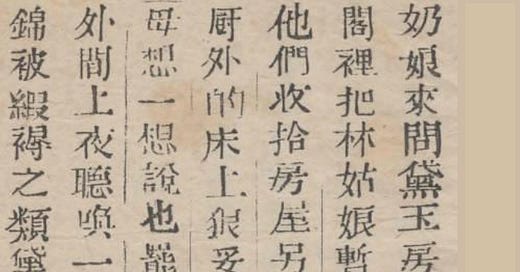 奶娘來問黛玉房
閣裡把林姑娘暫
他們收拾房屋另
厨外的床上狠妥
母想一想說也罷
外間上夜聽喚一
錦被緞褥之類黛